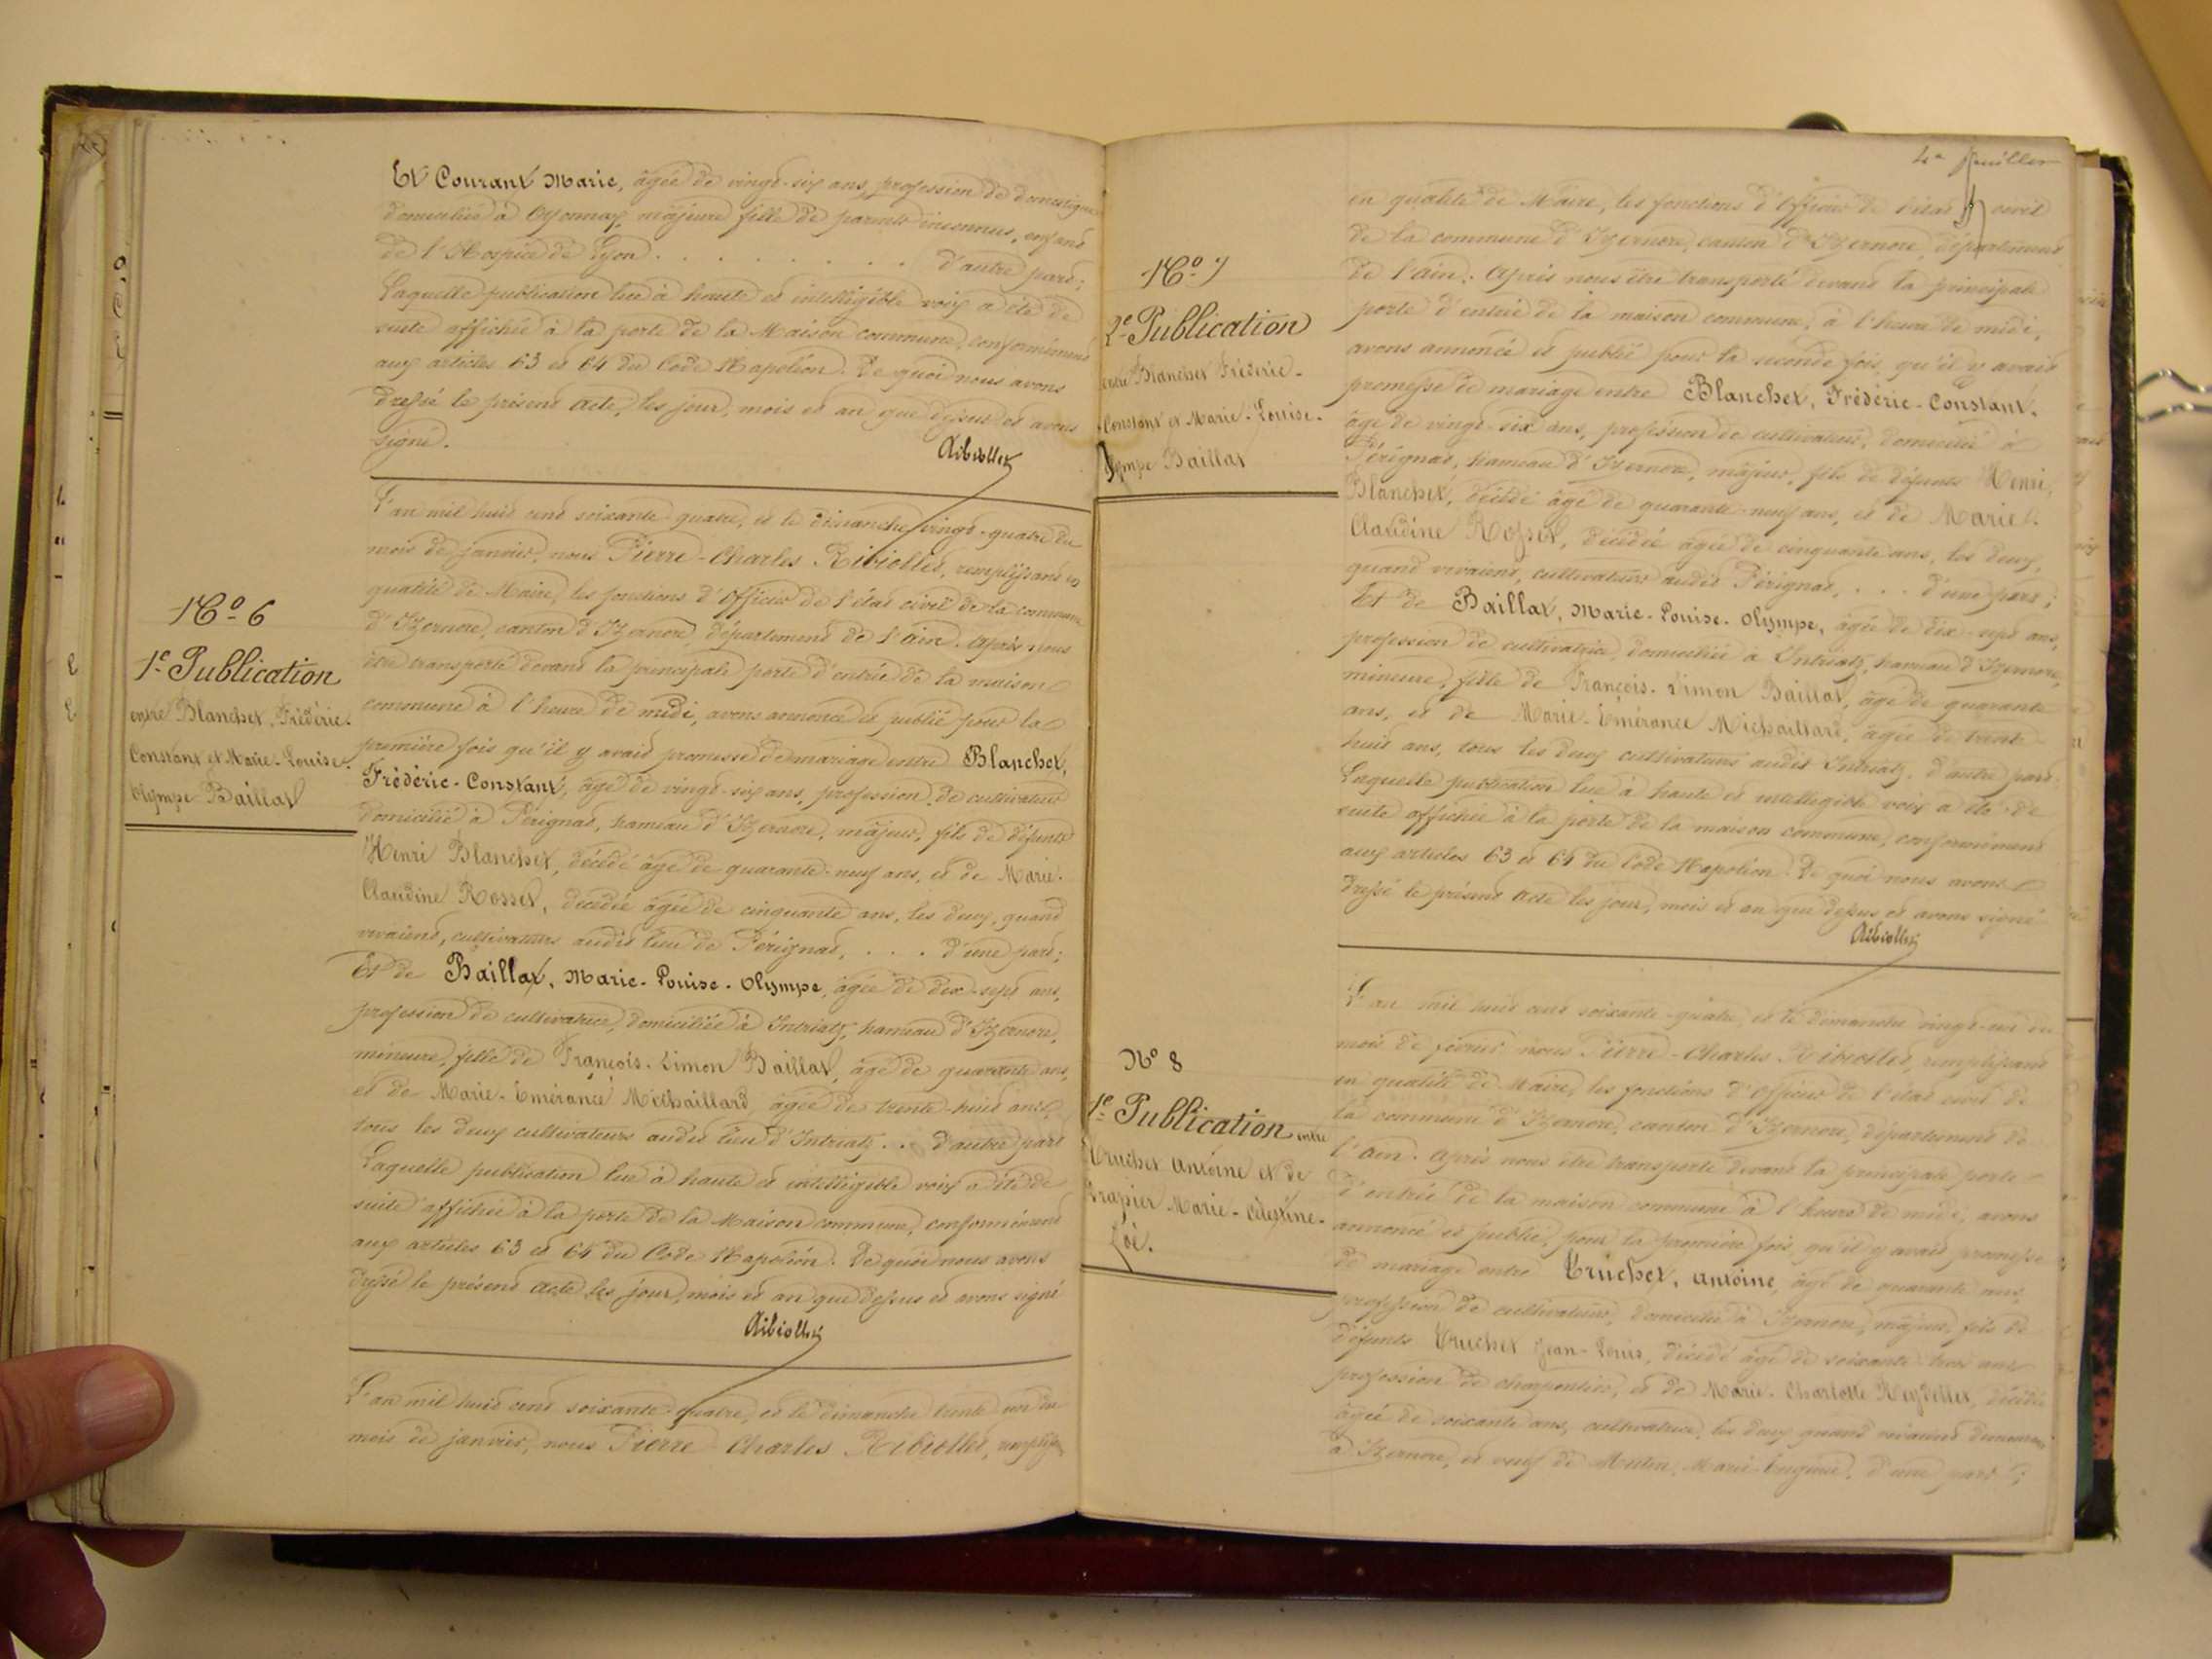 Et Courant Marie, âgée de vingt-six ans, profession de domestique
domiciliée à Oyonnax, majeure fille de parents inconnus, enfant
de l'Hospice de Lyon . . . . . . . . . d'autre part;
Laquelle publication lue à haute et intelligible voix a été de
suite affichée à la porte de la Maison commune, conformément
aux articles 63 et 64 du Code Napoléon. De quoi nous avons
dressé le présent acte, les jour, mois et an que dessus et avons
signé.
Ribiollet
N° 6
1e Publication
entre Blanchet, Frédéric-
Constant et Marie-Louise-
Olympe Baillat
L'an mil huit cent soixante-quatre, et le dimanche vingt-quatre du
mois de janvier, nous Pierre-Charles Ribiollet, remplissant en
qualité de Maire, les fonctions d'Officier de l'état civil de la commune
d'Izernore, canton d'Izernore, département de l'ain. Après nous
être transporté devant la principale porte d'entrée de la maison
commune à l'heure de midi, avons annoncé et publié pour la
première fois qu'il y avait promesse de mariage entre Blanchet,
Frédéric-Constant, âgé de vingt-six ans, profession de cultivateur
domicilié à Pérignat, hameau d'Izernore, majeur, fils de défunts
Henri Blanchet, décédé âgé de quarante-neuf ans, et de Marie-
Claudine Rosset, décédée âgée de cinquante ans, les deux, quand
vivaient, cultivateurs audit lieu de Pérignat, . . . d'une part;
Et de Baillat, Marie-Louise-Olympe, âgée de dix-sept ans,
profession de cultivatrice, domiciliée à Intriatz, hameau d'Izernore,
mineure, fille de François-Simon Baillat, âgé de quarante ans,
et de Marie-Emérance Michaillard, âgée de trente-huit ans,
tous les deux cultivateurs audit lieu d'Intriatz . . d'autre part
Laquelle publication lue à haute et intelligible voix a été de
suite affichée à la porte de la Maison commune, conformément
aux articles 63 et 64 du Code Napoléon. De quoi nous avons
dressé le présent acte les jour, mois et an que dessus et avons signé
Ribiollet
L'an mil huit cent soixante-quatre, et le dimanche trente un du
mois de janvier, nous Pierre Charles Ribiollet,
4e feuillet
N° 7
2e Publication
entre Blanchet Frédéric-
Constant et Marie-Louise-
Olympe Baillat
en qualité de Maire, les fonctions d'Officier de l'état civil
de la commune d'Izernore, canton d'Izernore, département
de l'ain. Après nous être transporté devant la principale
porte d'entrée de la maison commune, à l'heure de midi,
avons annoncé et publié pour la seconde fois, qu'il y avait
promesse de mariage entre Blanchet, Frédéric-Constant,
âgé de vingt-six ans, profession de cultivateur, domicilié à
Pérignat, hameau d'Izernore, majeur, fils de défunts Henri
Blanchet, décédé âgé de quarante-neuf ans, et de Marie-
Claudine Rosset, décédée âgée de cinquante ans, les deux,
quand vivaient, cultivateurs audit Pérignat, . . . d'une part;
Et de Baillat, Marie-Louise-Olympe, âgée de dix-sept ans,
profession de cultivatrice, domiciliée à Intriatz, hameau d'Izernore,
mineure, fille de François-Simon Baillat, âgé de quarante
ans, et de Marie-Emérance Michaillard, âgée de trente-
huit ans, tous les deux cultivateurs audit Intriatz. d'autre part.
Laquelle publication lue à haute et intelligible voix a été de
suite affichée à la porte de la maison commune, conformément
aux articles 63 et 64 du Code Napoléon. De quoi nous avons
dressé le présent acte les jour, mois et an que dessus et avons signé
Ribiollet
N° 8
1e Publication entre
Truchet Antoine et de
Marie-Célestine-
Zoé.
L'an mil huit cent soixante-quatre et le dimanche vingt-un du
mois de février nous Pierre-Charles Ribiollet, remplissant
en qualité de Maire, les fonctions d'Officier de l'état civil de
la commune d'Izernore, canton d'Izernore, département de
l'Ain. Après nous être transporté devant la principale porte
d'entrée de la maison commune à l'heure de midi, avons
annoncé et publié, pour la première fois, qu'il y avait promesse
de mariage entre Truchet, Antoine, âgé de quarante ans,
profession de cultivateur, domicilié à Izernore, majeur, fils de
défunts Truchet Jean-Louis, décédé âgé de soixante trois ans
profession de charpentier, et de Marie-Charlotte Reydellet, décédée
âgée de soixante ans, cultivatrice, les deux quand vivaient demeurant
à Izernore, et veuf de Marie-Eugénie, d'une part;